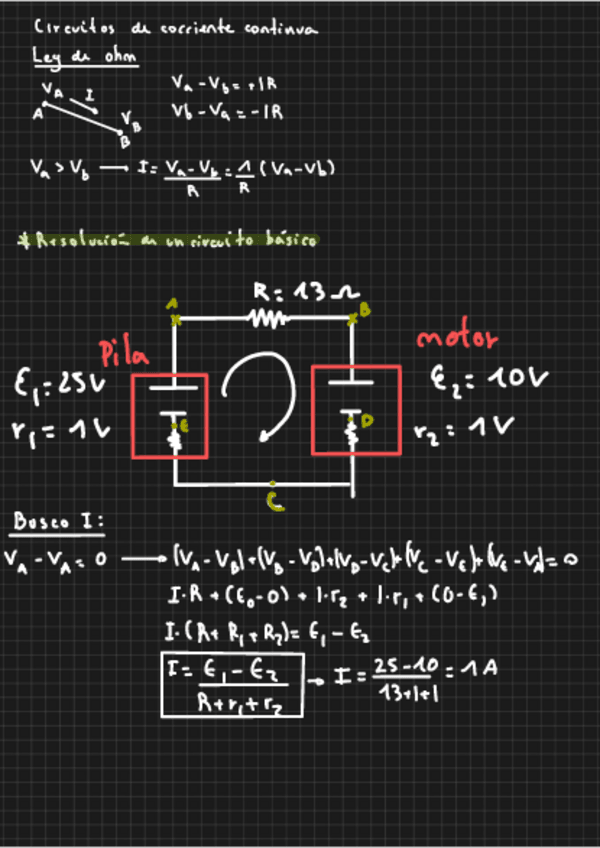 Circuitos de corriente continua
Ley de ohm
V_A I V_B
A B
V_a - V_b = +IR
V_b - V_a = -IR
V_a > V_b → I = (V_a - V_b)/R = 1/R (Va - Vb)
* Resolución de un circuito básico
R = 13 Ω
A B
Pila motor
E₁ = 25V E₂ = 10V
r₁ = 1V r₂ = 1V
E D
C
Busco I:
V_A - V_A = 0 → (V_A - V_B) + (V_B - V_D) + (V_D - V_C) + (V_C - V_E) + (V_E - V_A) = 0
I·R + (E₀ - 0) + I·r₂ + I·r₁ + (0 - E₁)
I·(R + R₁ + R₂) = E₁ - E₂
I = (E₁ - E₂)/(R + r₁ + r₂) → I = (25 - 10)/(13 + 1 + 1) = 1A